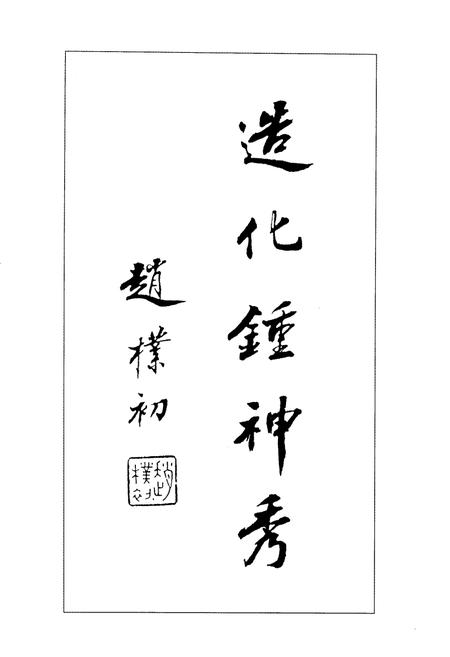 造化鍾神秀
趙樸初
趙樸初